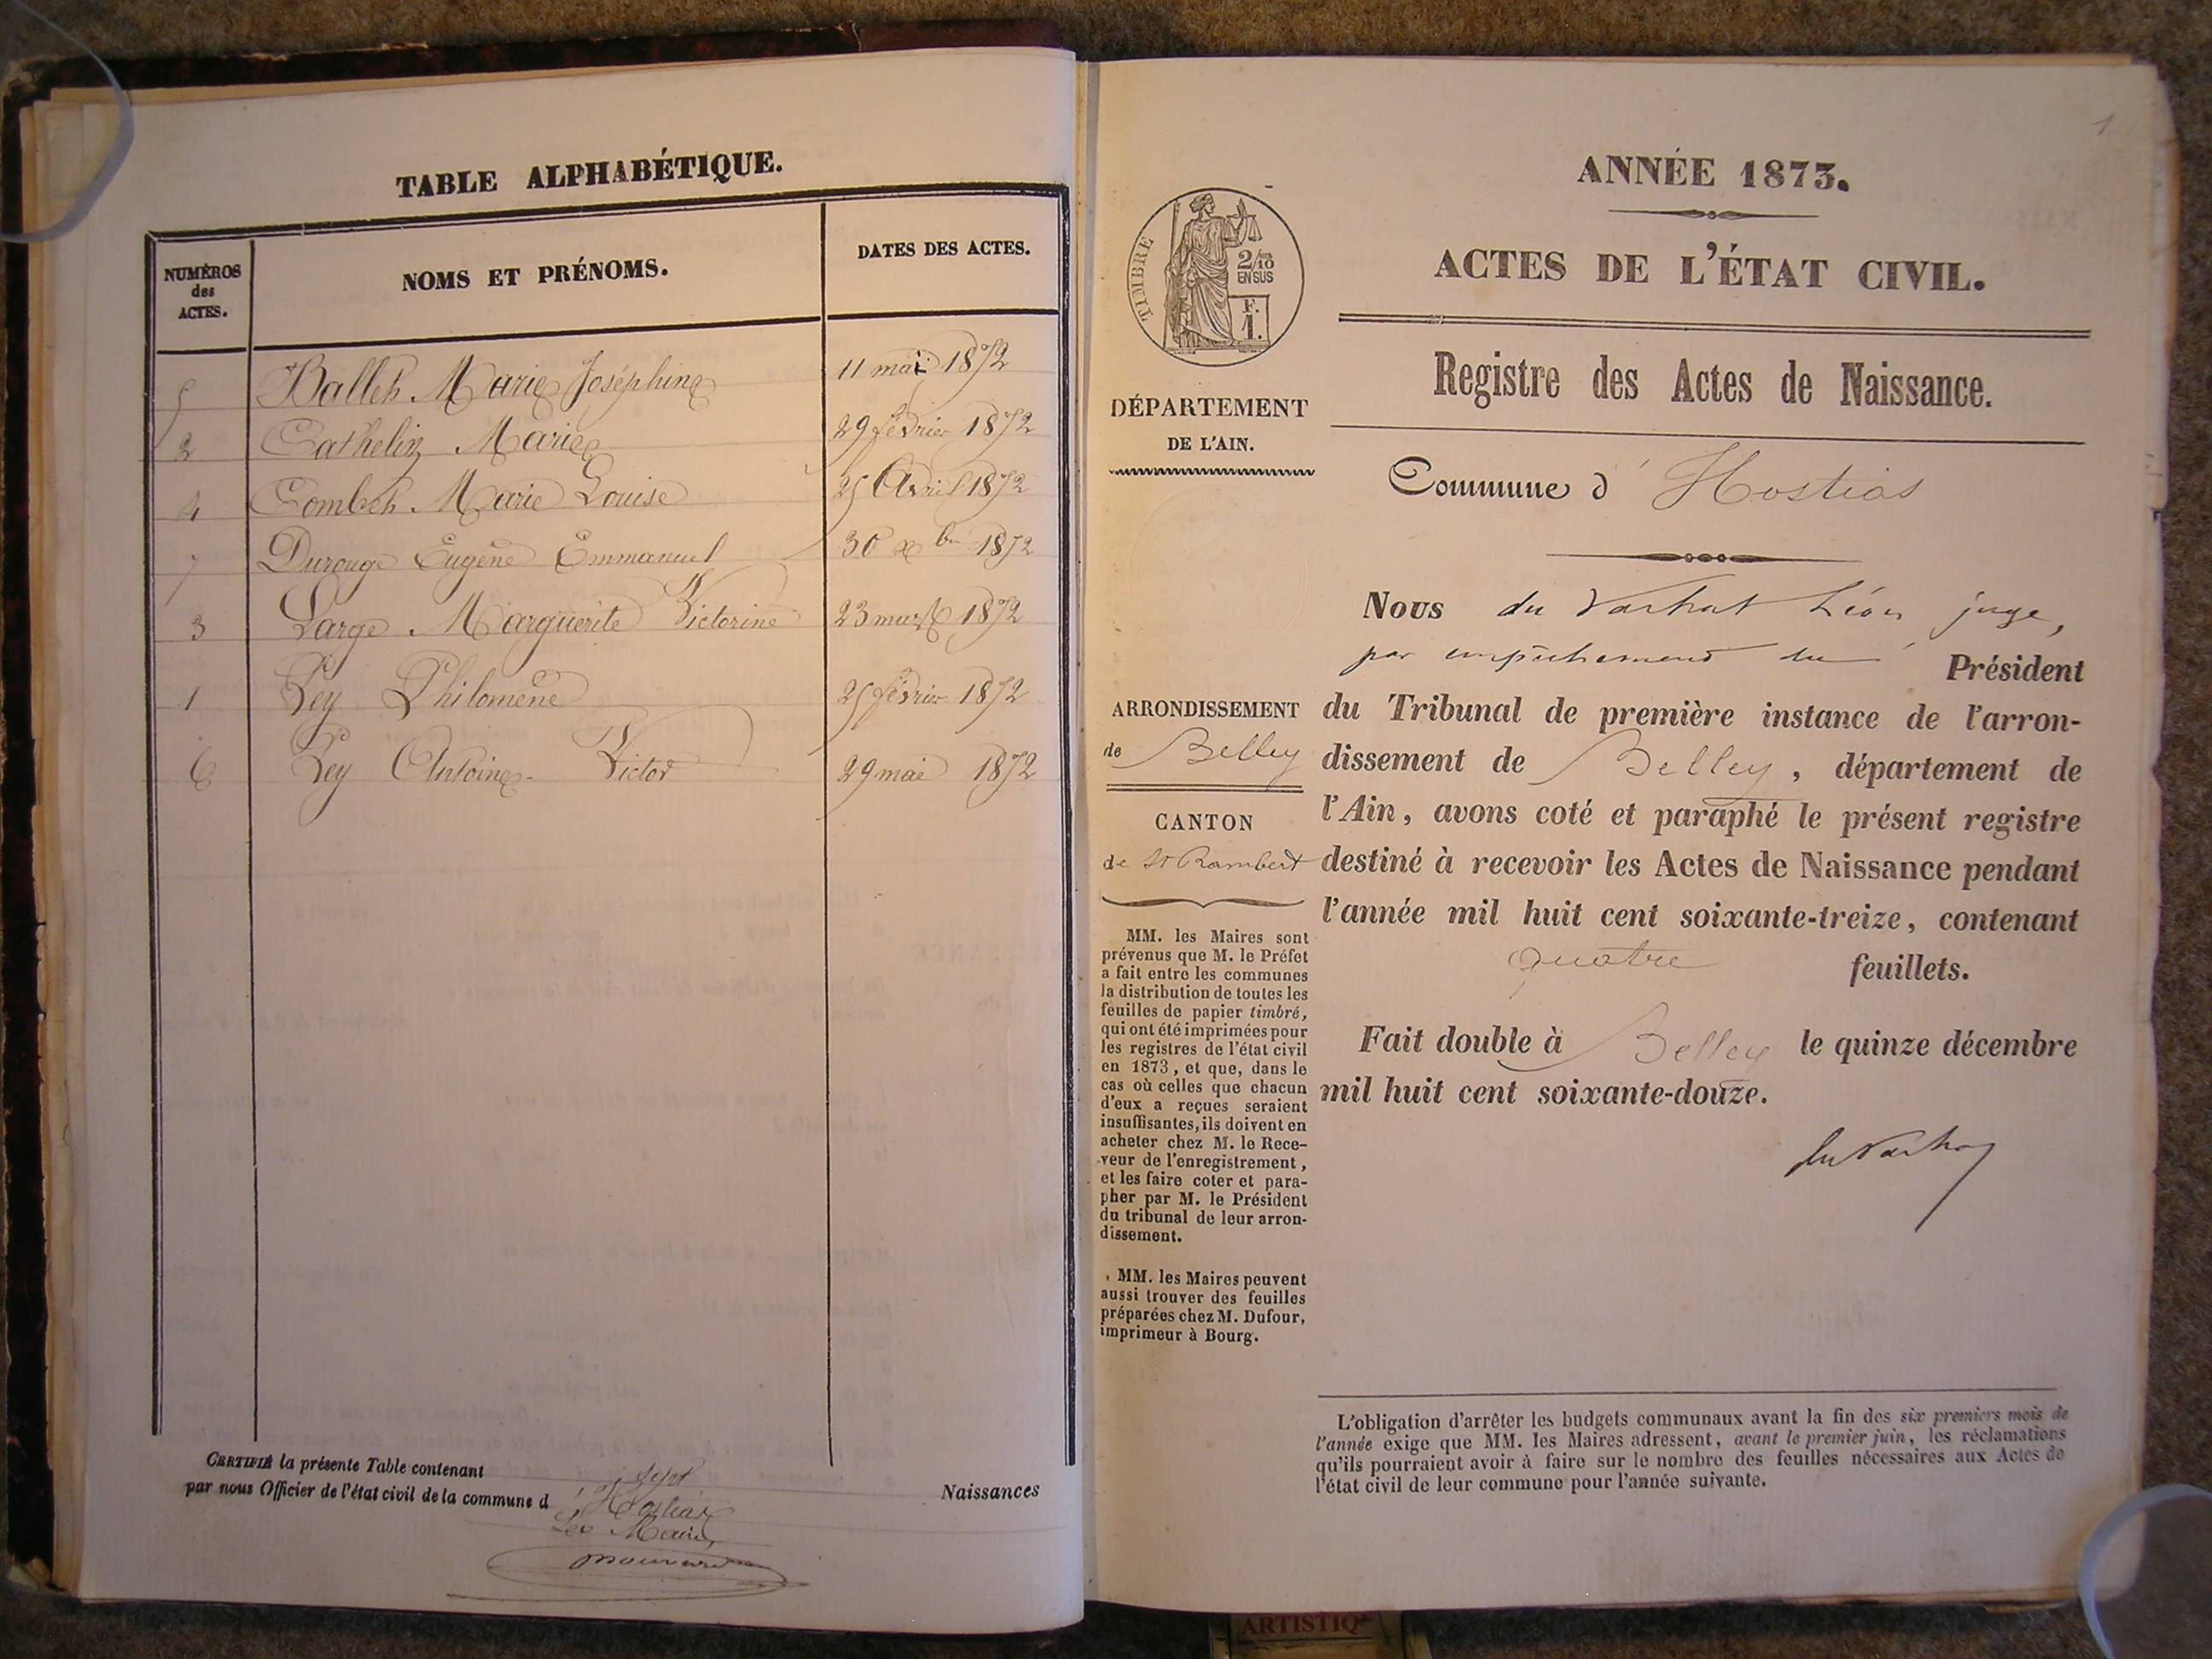 TABLE ALPHABÉTIQUE.
NUMÉROS
des
ACTES.
NOMS ET PRÉNOMS.
DATES DES ACTES.
5 Ballet Marie Joséphine 11 mai 1872
2 Cathelin Marie 29 février 1872
4 Combet Marie Louise 25 Avril 1872
7 Durouge Eugène Emmanuel 30 xbre 1872
3 Large Marguerite Victorine 23 mars 1872
1 Rey Philomène 25 février 1872
6 Rey Antoine Victor 29 mai 1872
CERTIFIÉ la présente Table contenant sept Naissances
par nous Officier de l'état civil de la commune d'Hostias
Le Maire,
1
ANNÉE 1873.
ACTES DE L'ÉTAT CIVIL.
Registre des Actes de Naissance.
Commune d'Hostias
TIMBRE
2/10
EN SUS
F.
1.
DÉPARTEMENT
DE L'AIN.
ARRONDISSEMENT
de Belley
CANTON
de St Rambert
MM. les Maires sont
prévenus que M. le Préfet
a fait entre les communes
la distribution de toutes les
feuilles de papier timbré,
qui ont été imprimées pour
les registres de l'état civil
en 1873, et que, dans le
cas où celles que chacun
d'eux a reçues seraient
insuffisantes, ils doivent en
acheter chez M. le Rece-
veur de l'enregistrement,
et les faire coter et para-
pher par M. le Président
du tribunal de leur arron-
dissement.
MM. les Maires peuvent
aussi trouver des feuilles
préparées chez M. Dufour,
imprimeur à Bourg.
Nous du Léon juge,
par empêchement du Président
du Tribunal de première instance de l'arron-
dissement de Belley, département de
l'Ain, avons coté et paraphé le présent registre
destiné à recevoir les Actes de Naissance pendant
l'année mil huit cent soixante-treize, contenant
quatre feuillets.
Fait double à Belley le quinze décembre
mil huit cent soixante-douze.
L'obligation d'arrêter les budgets communaux avant la fin des six premiers mois de
l'année exige que MM. les Maires adressent, avant le premier juin, les réclamations
qu'ils pourraient avoir à faire sur le nombre des feuilles nécessaires aux Actes de
l'état civil de leur commune pour l'année suivante.
ARTISTIQ